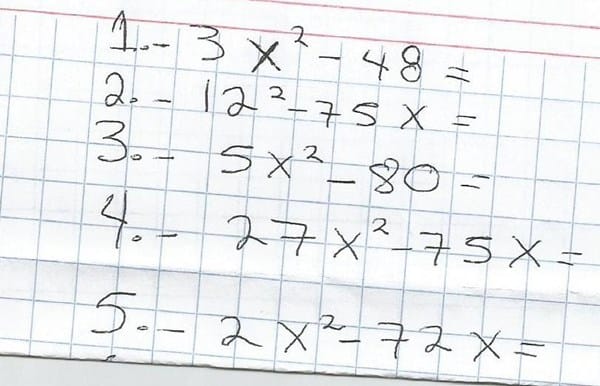 1.- 3x² - 48 =
2.- 12² - 75x =
3.- 5x² - 80 =
4.- 27x² - 75x =
5.- 2x² - 72x =